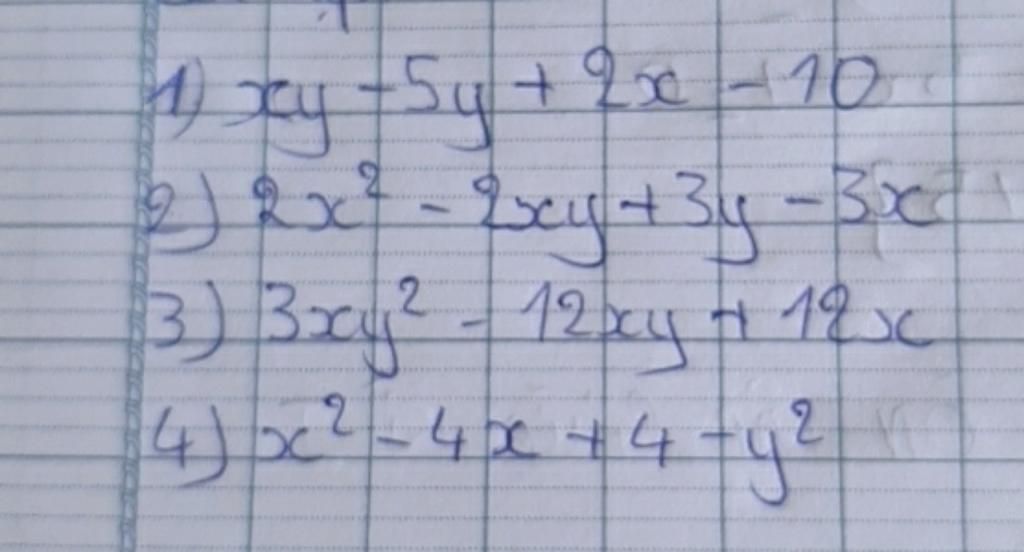 1) xy - 5y + 2x - 10
2) 2x² - 2xy + 3y - 3x
3) 3xy² - 12xy + 12x
4) x² - 4x + 4 - y²